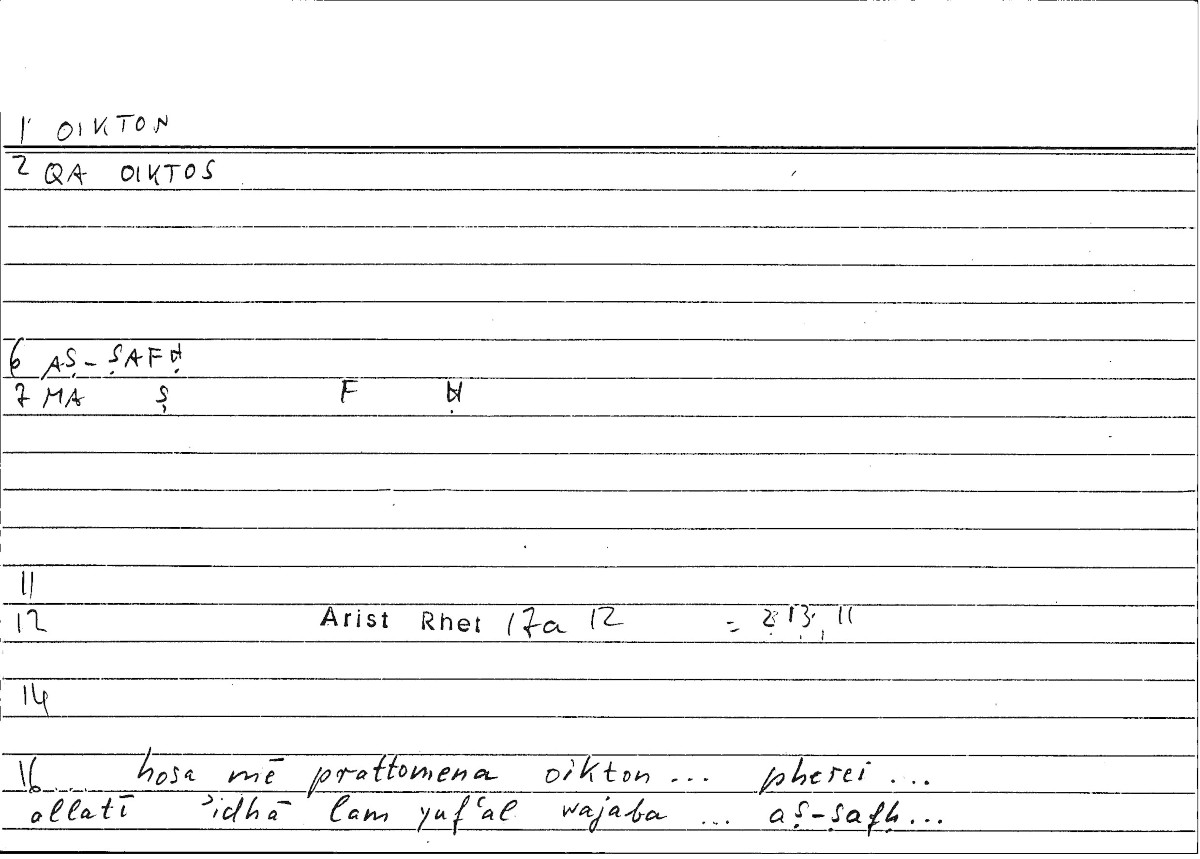 1 OIKTON
2 QA OIKTOS
6 AṢ-ṢAFḤ
7 MA Ṣ F Ḥ
11
12 Arist Rhet 17a 12 = 213, 11
14
16 hosa mē prattomena oikton ... pherei ...
allatī ʾidhā lam yufʿal wajaba ... aṣ-ṣafḥ...